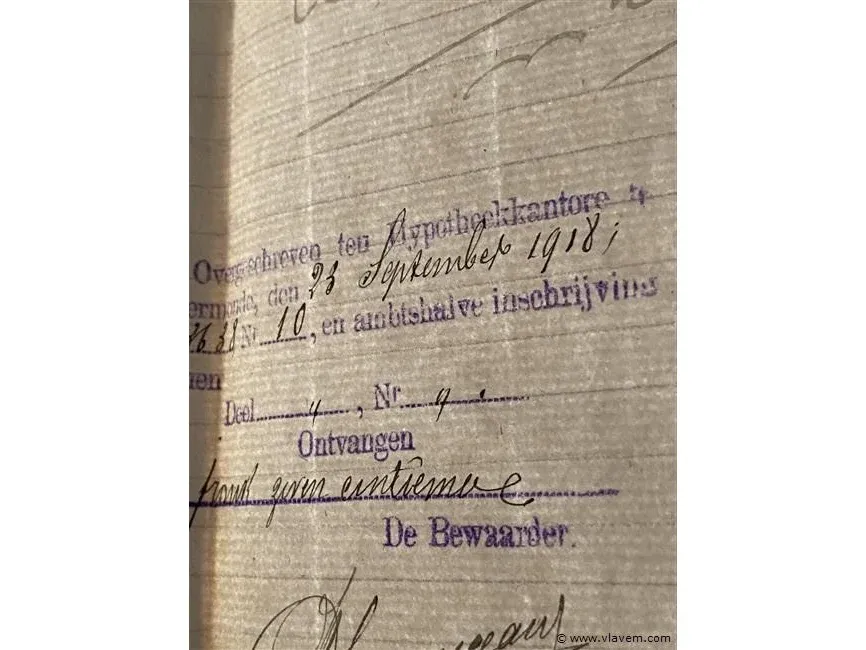 Overgeschreven ten Hypotheekkantore
ermonde, den 23 September 1918;
38 Nr 10, en ambtshalve inschrijving
en
Deel 4, Nr 9.
Ontvangen
frank zeven centiemen
De Bewaarder.
© www.vlavem.com